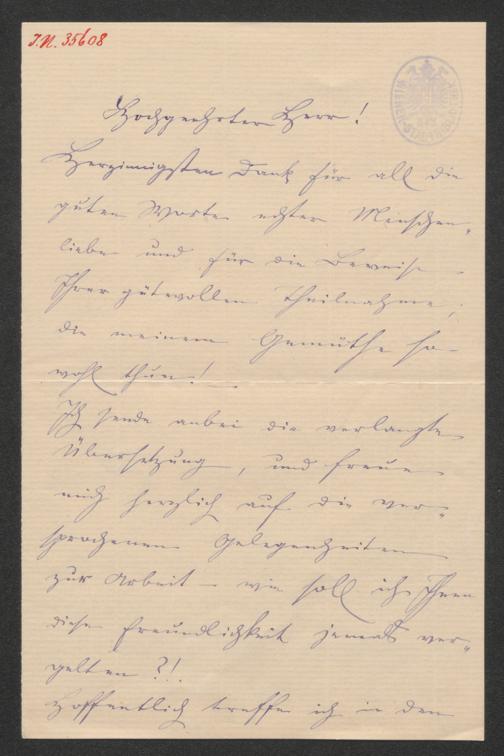 J.N. 35608
Hochgeehrter Herr!
Herzinnigsten Dank für all die
guten Worte echter Menschen-
liebe und für die Beweise
Ihrer gütevollen Theilnahme,
die meinem Gemüthe so
wohl thun! –
Ich sende anbei die verlangte
Übersetzung, und freue
mich herzlich auf die ver-
sprochenen Gelegenheiten
zur Arbeit – wie soll ich Ihnen
diese Freundlichkeit jemals ver-
gelten?!
Hoffentlich treffe ich in den